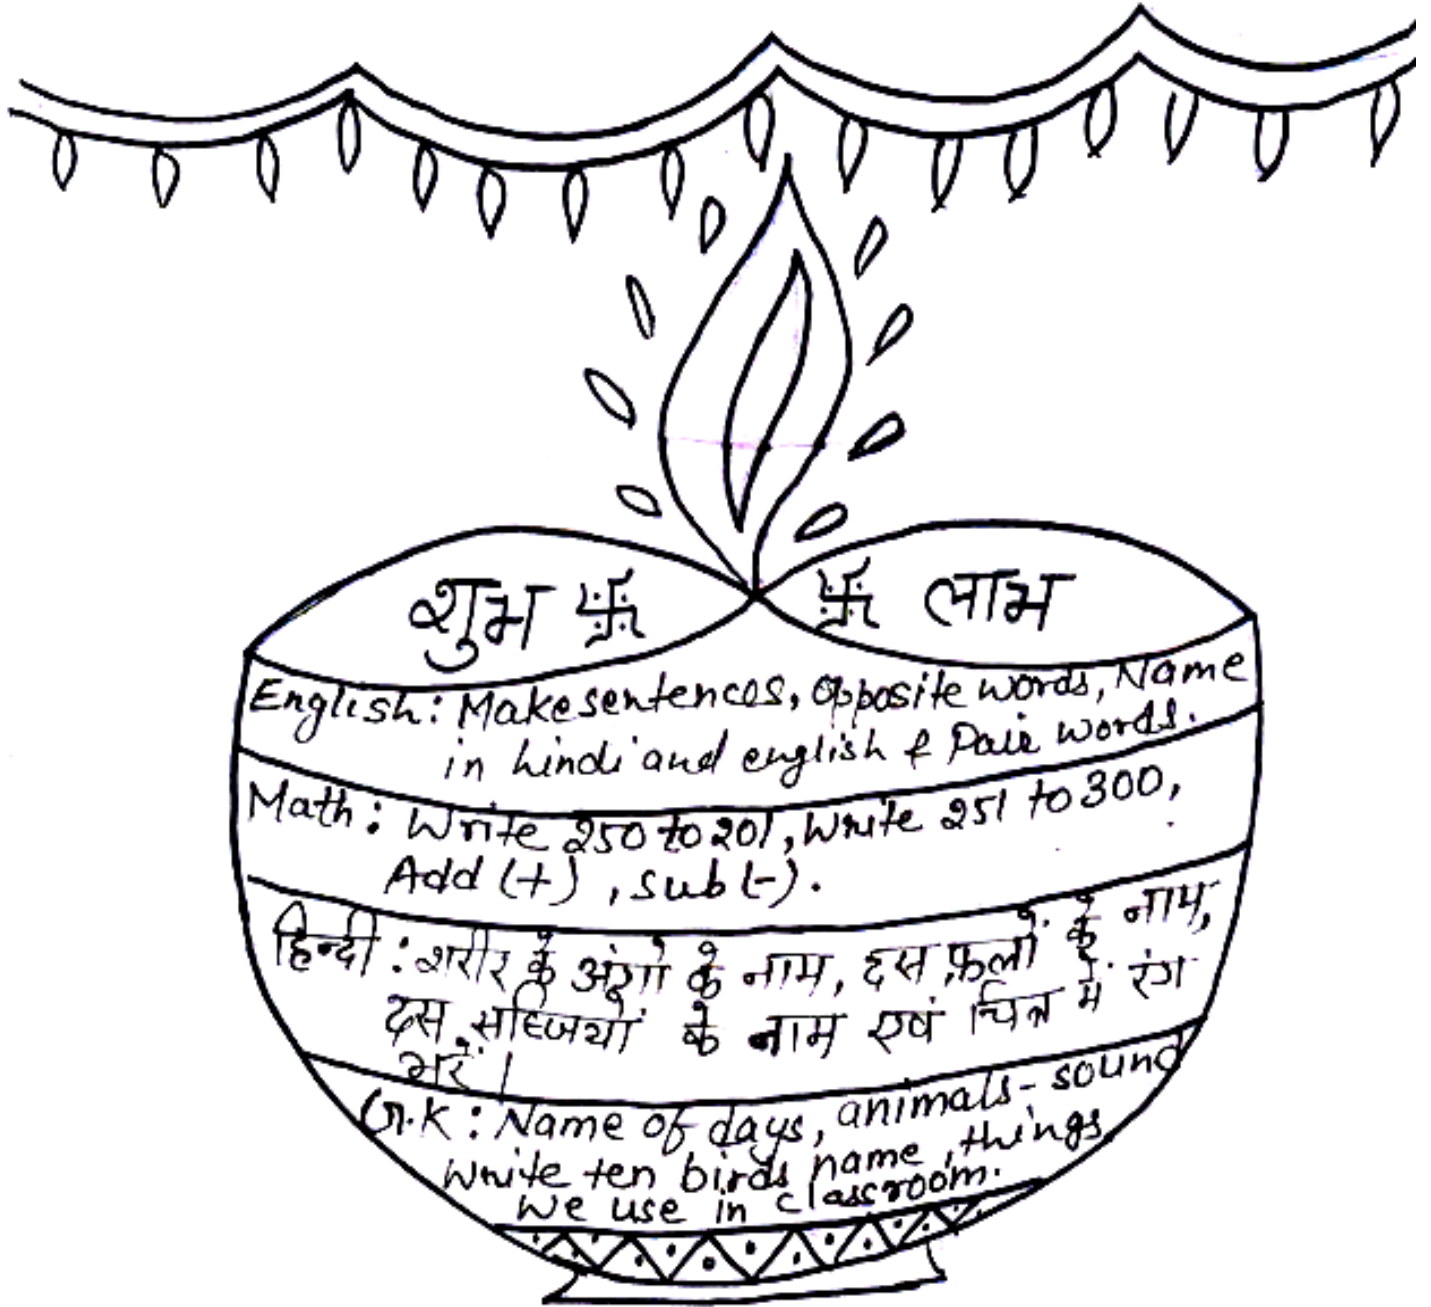 शुभ 卐 卐 लाभ
English: Make sentences, Opposite words, Name
in hindi and english & Pair words.
Math: Write 250 to 201, Write 251 to 300,
Add (+), Sub (-).
हिन्दी: शरीर के अंगो के नाम, दस फलों के नाम,
दस सब्जियों के नाम एवं चित्र में रंग
भरें।
G.K: Name of days, animals-sound
write ten birds name, things
we use in classroom.